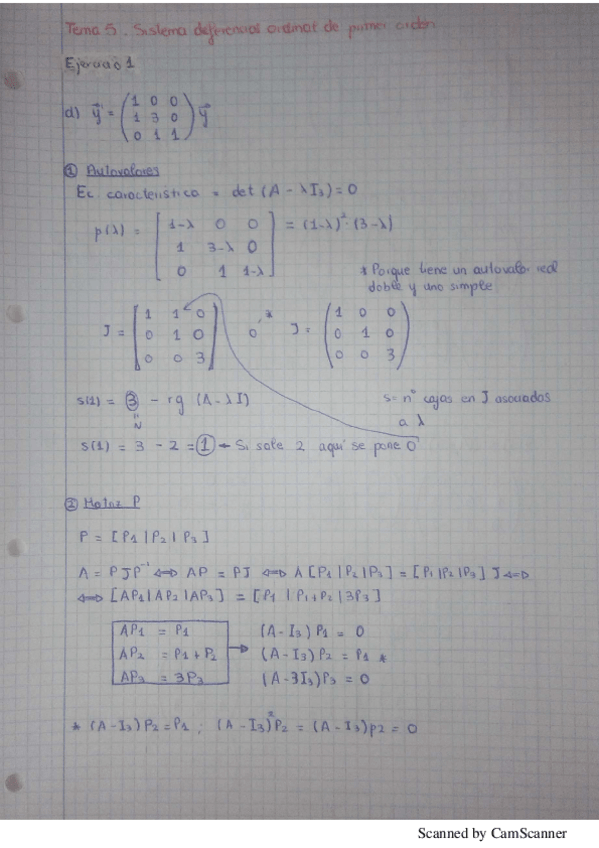 Tema 5. Sistema diferencial ordinal de primer orden
Ejercicio 1
d) y⃗' = (1 0 0 / 1 3 0 / 0 1 1) y⃗
① Autovalores
Ec. característica = det (A - λI₃) = 0
p(λ) = [1-λ 0 0 / 1 3-λ 0 / 0 1 1-λ] = (1-λ)² · (3-λ)
* Porque tiene un autovalor real
doble y uno simple
J = [1 1 0 / 0 1 0 / 0 0 3] o * J = (1 0 0 / 0 1 0 / 0 0 3)
s(1) = ③ - rg (A - λI)
s = nº cajas en J asociados
a λ
"
N
s(1) = 3 - 2 = ① ← Si sale 2 aquí se pone 0
② Matriz P
P = [P₁ | P₂ | P₃]
A = PJP⁻¹ ⟺ AP = PJ ⟺ A [P₁ | P₂ | P₃] = [P₁ | P₂ | P₃] J ⟺
⟺ [AP₁ | AP₂ | AP₃] = [P₁ | P₁+P₂ | 3P₃]
AP₁ = P₁ (A - I₃) P₁ = 0
AP₂ = P₁ + P₂ → (A - I₃) P₂ = P₁ *
AP₃ = 3P₃ (A - 3I₃) P₃ = 0
* (A - I₃) P₂ = P₁ ; (A - I₃)² P₂ = (A - I₃) p₂ = 0
Scanned by CamScanner